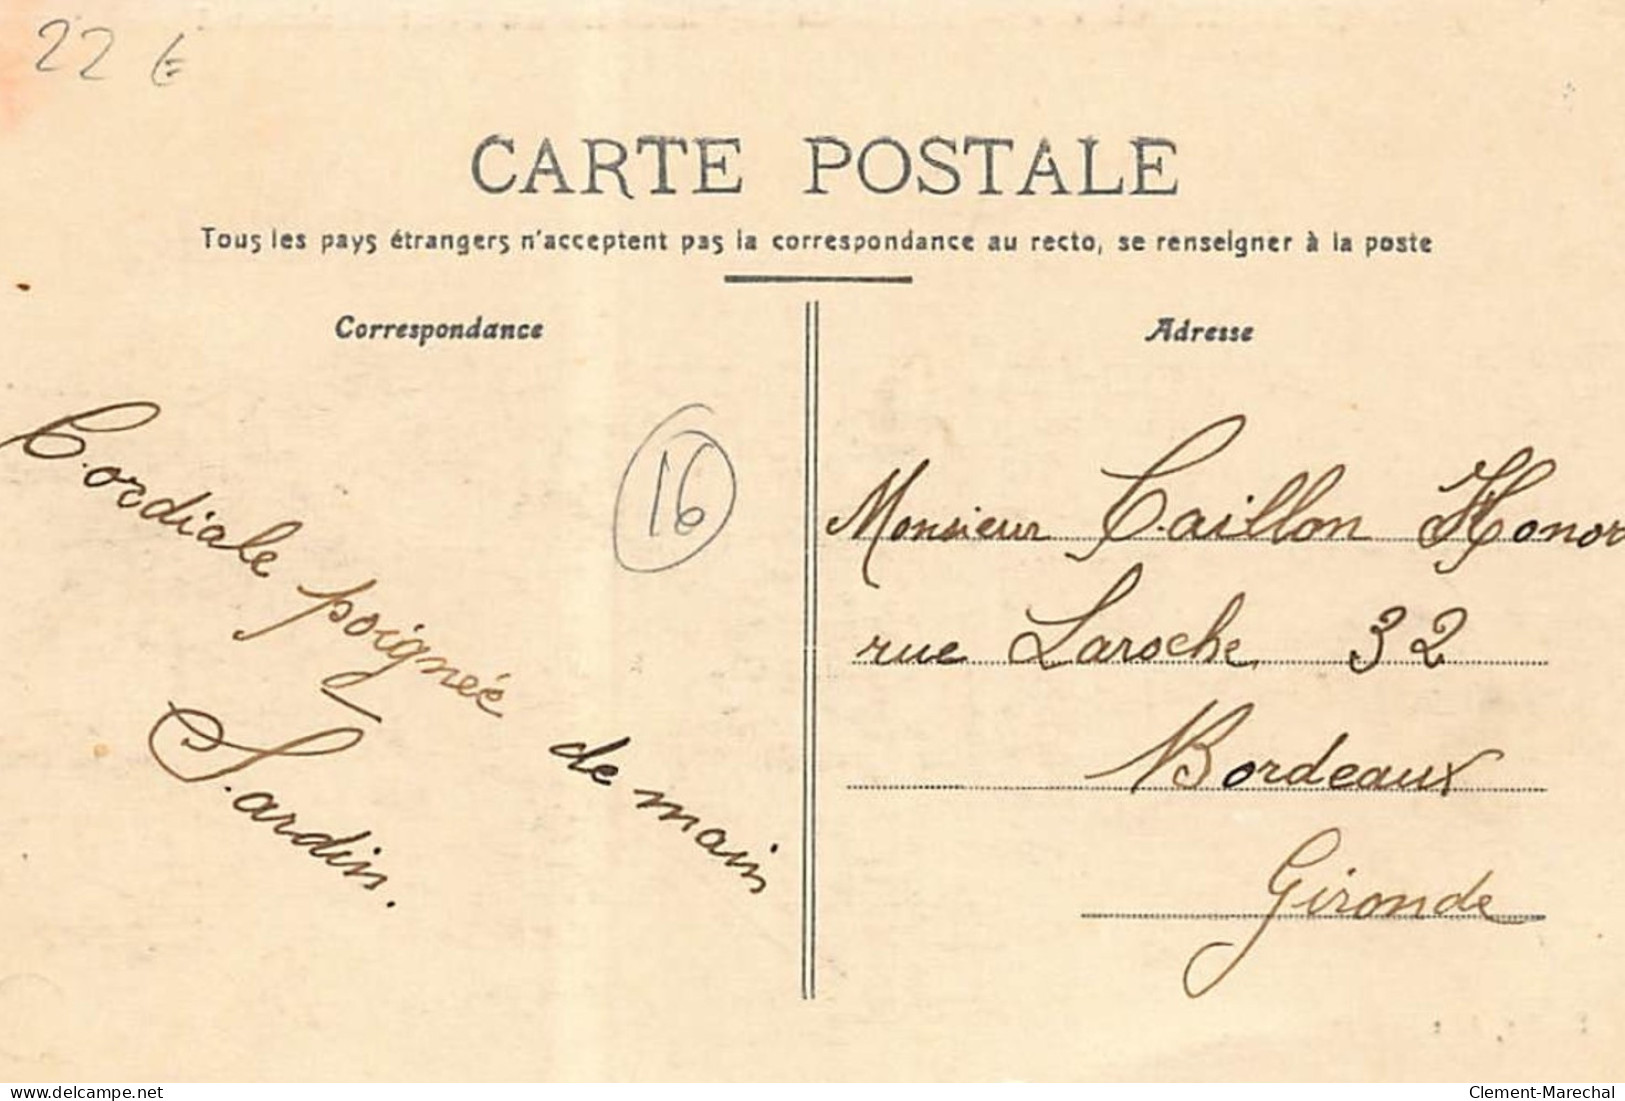 22 €
CARTE POSTALE
Tous les pays étrangers n'acceptent pas la correspondance au recto, se renseigner à la poste
Correspondance
Cordiale poignée de main
Sardin.
16
Adresse
Monsieur Caillon Honor
rue Laroche 32
Bordeaux
Gironde
delcampe.net
Clement-Marechal